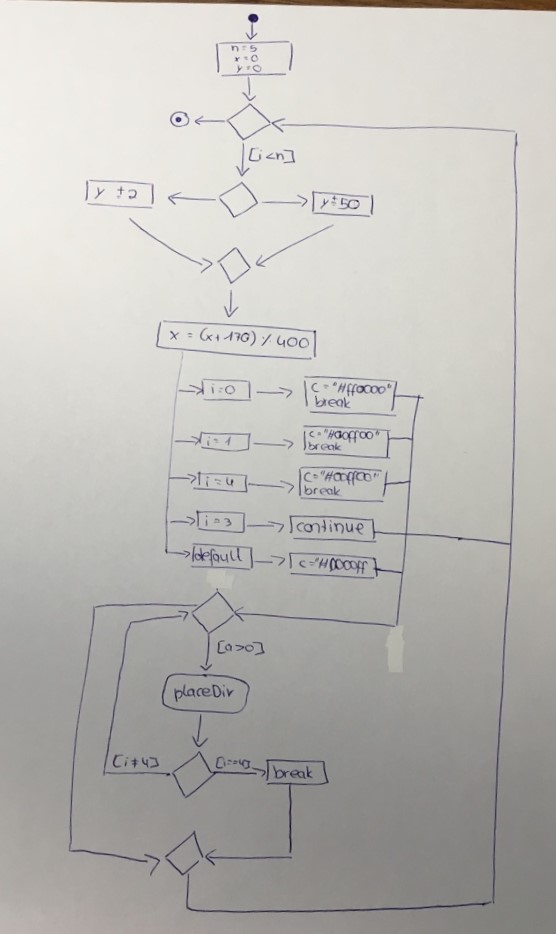 n=5
x=0
y=0
[i<n]
y ±2
y±50
x = (x+170) % 400
i=0
c="#ff0000"
break
i=1
c="#00ff00"
break
i=4
c="#00ff00"
break
i=3
continue
default
c="#0000ff
[a>0]
placeDiv
[i≠4]
[i==4]
break